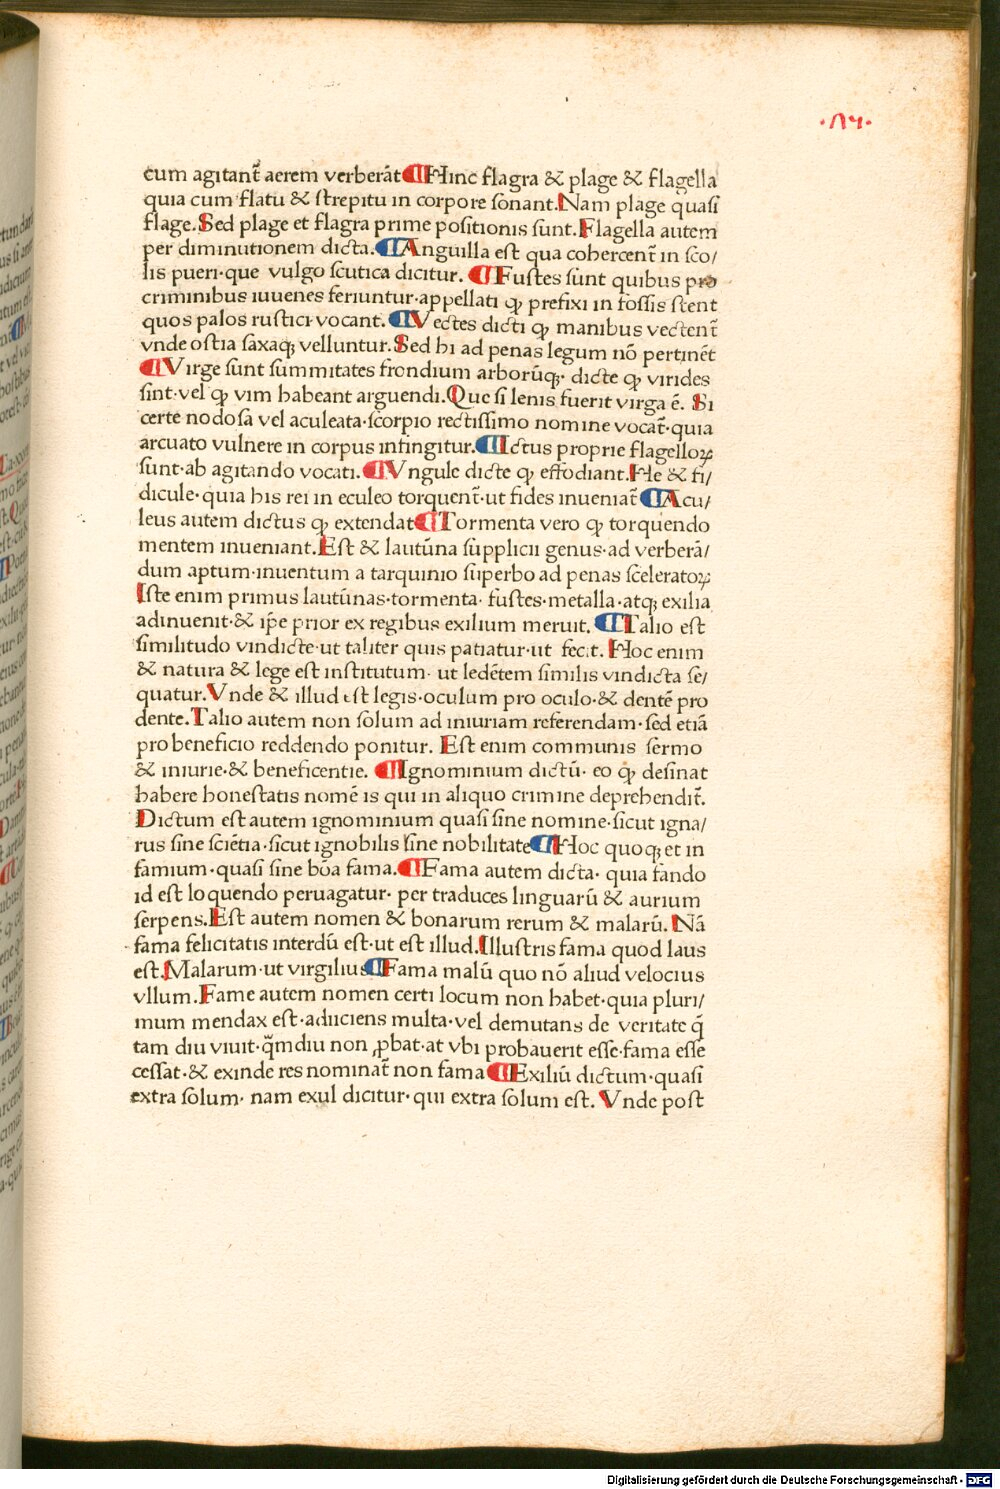 ·𐑀ץ·
cum agitant̃ aerem verberãt ¶Hinc flagra & plage & flagella
quia cum flatu & strepitu in corpore sonant. Nam plage quasi
flage. Sed plage et flagra prime positionis sunt. Flagella autem
per diminutionem dicta. ¶Anguilla est qua cohercent̃ in sco/
lis pueri·que vulgo scutica dicitur. ¶Fustes sunt quibus pro
criminibus iuuenes feriuntur·appellati ꝙ prefixi in fossis stent
quos palos rustici vocant. ¶Vectes dicti ꝙ manibus vectent̃
vnde ostia saxaqꝫ velluntur. Sed hi ad penas legum nõ pertinẽt
¶Virge sunt summitates frondium arborũqꝫ· dicte ꝙ virides
sint·vel ꝙ vim habeant arguendi. Que si lenis fuerit virga ẽ. Si
certe nodosa vel aculeata·scorpio rectissimo nomine vocat̃·quia
arcuato vulnere in corpus infingitur. ¶Ictus proprie flagelloꝝ
sunt·ab agitando vocati. ¶Vngule dicte ꝙ effodiant. He & fi/
dicule·quia his rei in eculeo torquent̃·ut fides inueniat̃ ¶Acu/
leus autem dictus ꝙ extendat ¶Tormenta vero ꝙ torquendo
mentem inueniant. Est & lautũna supplicii genus·ad verberã/
dum aptum·inuentum a tarquinio superbo ad penas sceleratoꝝ
Iste enim primus lautũnas·tormenta·fustes·metalla·atqꝫ exilia
adinuenit·& ip̃e prior ex regibus exilium meruit. ¶Talio est
similitudo vindicte·ut taliter quis patiatur·ut fecit. Hoc enim
& natura & lege est institutum· ut ledẽtem similis vindicta se/
quatur. Vnde & illud est legis·oculum pro oculo·& dentẽ pro
dente. Talio autem non solum ad iniuriam referendam·sed etiã
pro beneficio reddendo ponitur. Est enim communis sermo
& iniurie·& beneficentie. ¶Ignominium dictũ· eo ꝙ desinat
habere honestatis nomẽ is qui in aliquo crimine deprehendit̃.
Dictum est autem ignominium quasi sine nomine·sicut igna/
rus sine sciẽtia·sicut ignobilis sine nobilitate ¶Hoc quoqꝫ et in
famium·quasi sine bõa fama. ¶Fama autem dicta· quia fando
id est loquendo peruagatur· per traduces linguarũ & aurium
serpens. Est autem nomen & bonarum rerum & malarũ. Nã
fama felicitatis interdũ est·ut est illud. Illustris fama quod laus
est. Malarum·ut virgilius ¶Fama malũ quo nõ aliud velocius
vllum. Fame autem nomen certi locum non habet·quia pluri/
mum mendax est·adiiciens multa·vel demutans de veritate q̃
tam diu viuit·q̃mdiu non ꝓbat·at vbi probauerit esse·fama esse
cessat·& exinde res nominat̃ non fama ¶Exiliũ dictum·quasi
extra solum· nam exul dicitur·qui extra solum est. Vnde post
Digitalisierung gefördert durch die Deutsche Forschungsgemeinschaft - DFG